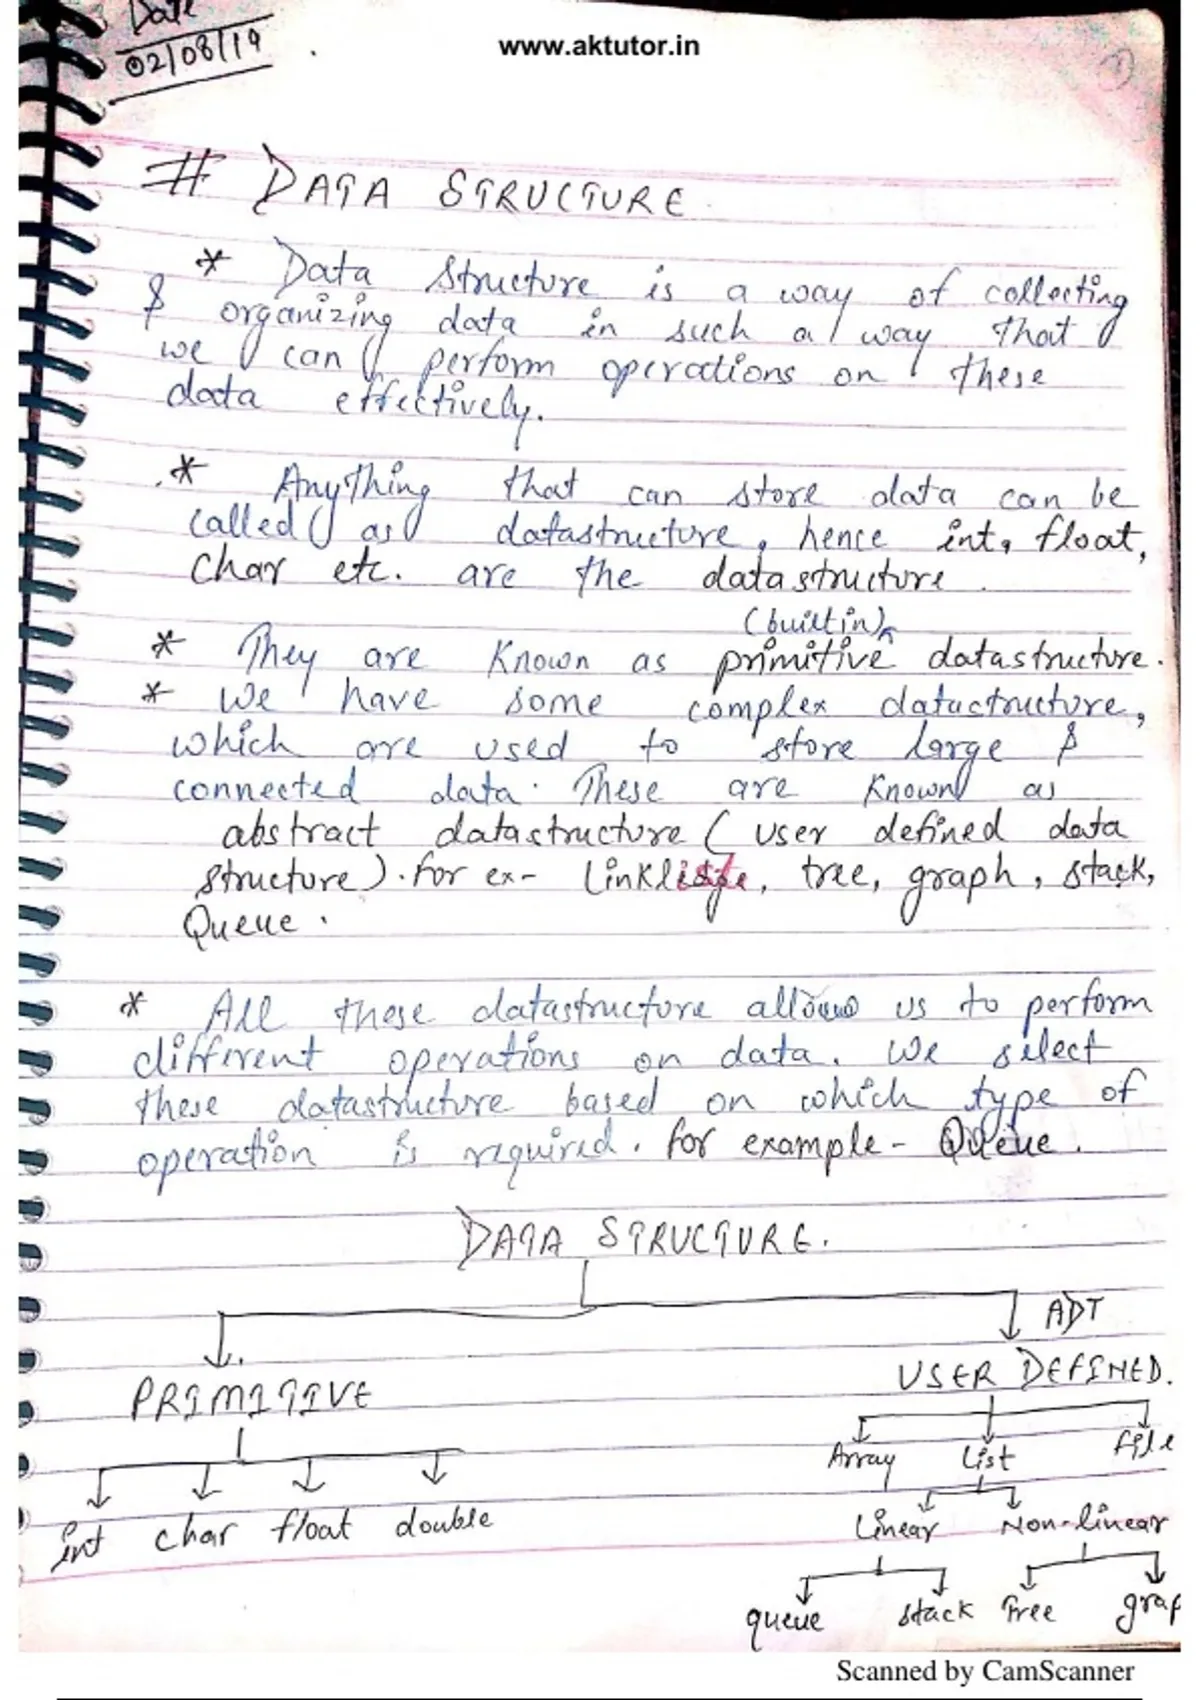 Date
02/08/19
www.aktutor.in
# DATA STRUCTURE
* Data Structure is a way of collecting
& organizing data in such a way that
we can perform operations on these
data effectively.
* Anything that can store data can be
called as datastructure, hence int, float,
char etc. are the datastructure.
(builtin)
* They are known as primitive datastructure.
* We have some complex datastructure,
which are used to store large &
connected data. These are known as
abstract datastructure (user defined data
structure). for ex- Linklist, tree, graph, stack,
Queue.
* All these datastructure allows us to perform
different operations on data. We select
these datastructure based on which type of
operation is required. for example - Queue.
DATA STRUCTURE.
ADT
PRIMITIVE USER DEFINED.
Array List file
int char float double
Linear Non-linear
queue stack Tree grap
Scanned by CamScanner